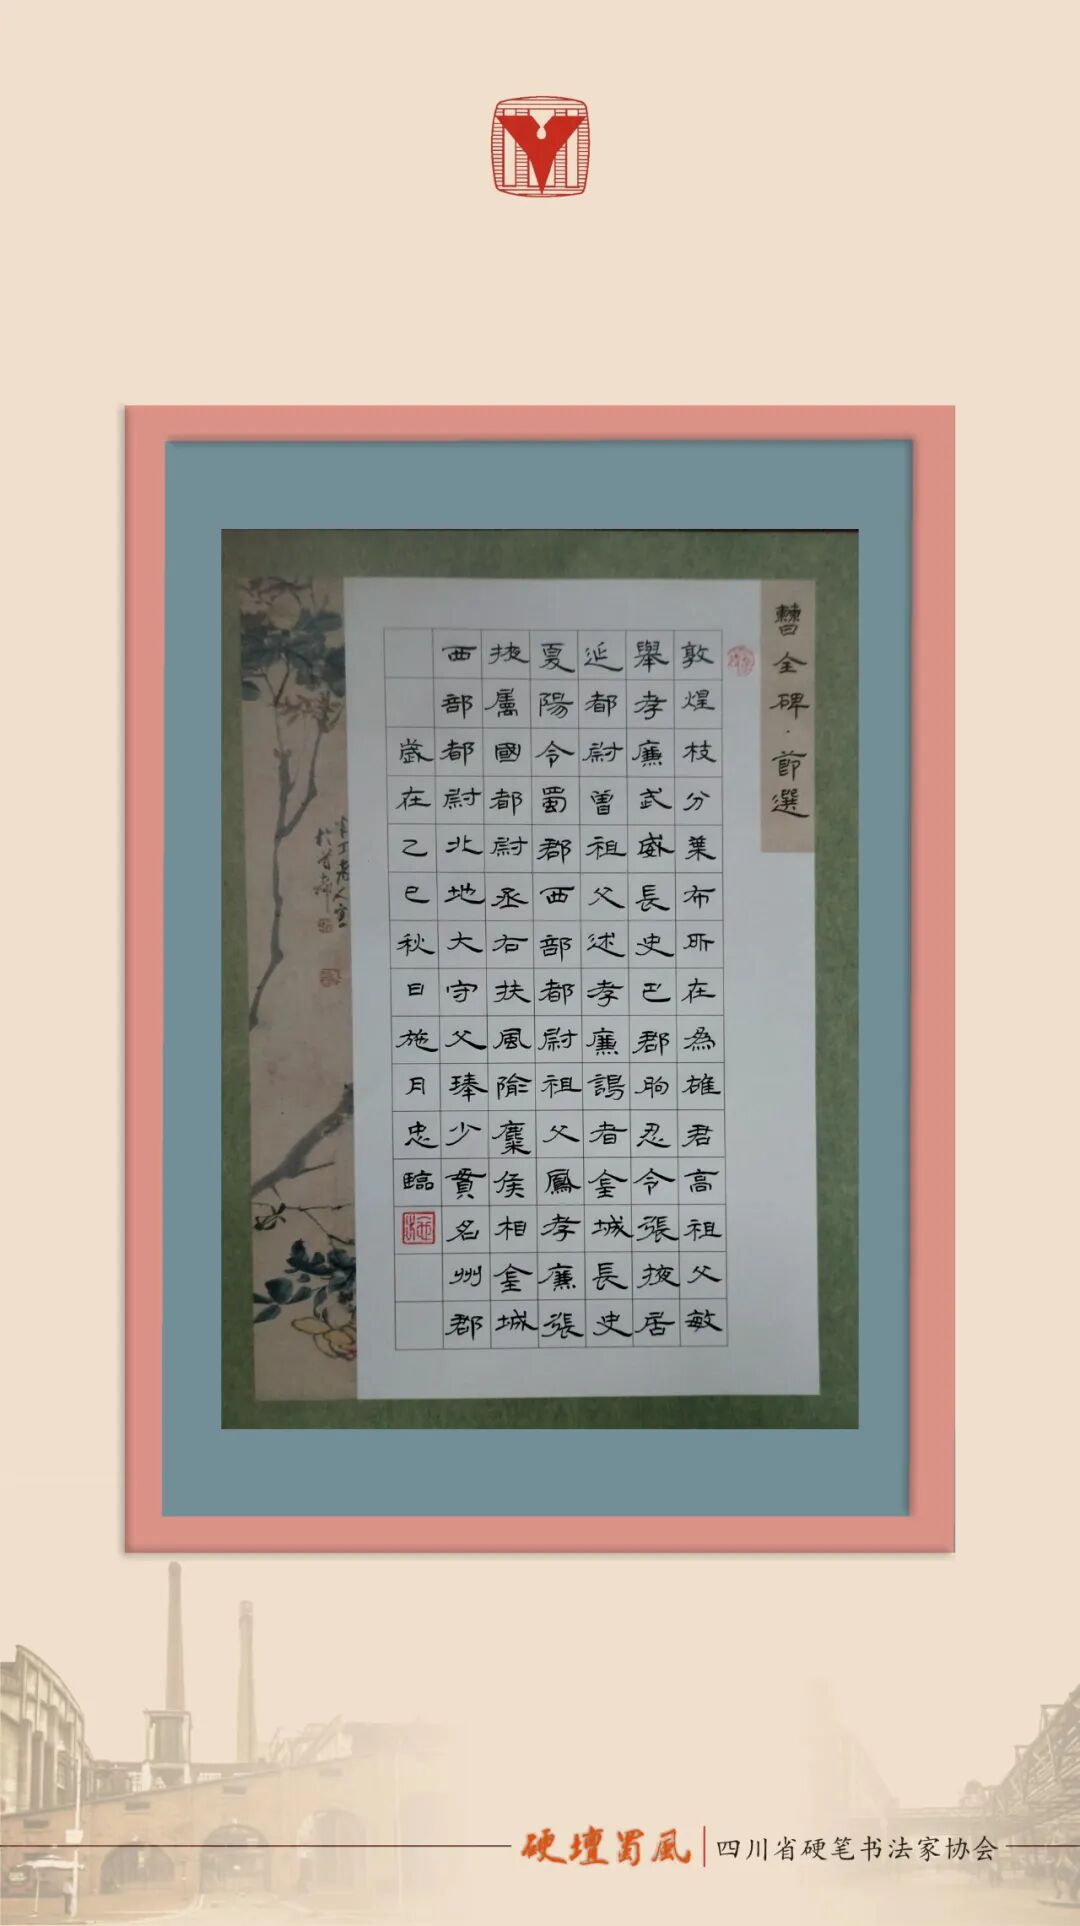 曹全碑·節選
敦煌枝分葉布所在為雄君高祖父敏
舉孝廉武威長史巴郡朐忍令張掖居
延都尉曾祖父述孝廉謁者金城長史
夏陽令蜀郡西部都尉祖父鳳孝廉張
掖屬國都尉丞右扶風隃麋侯相金城
西部都尉北地大守父琫少貫名州郡
歲在乙巳秋日施月忠臨
硬壇蜀風
四川省硬笔书法家协会